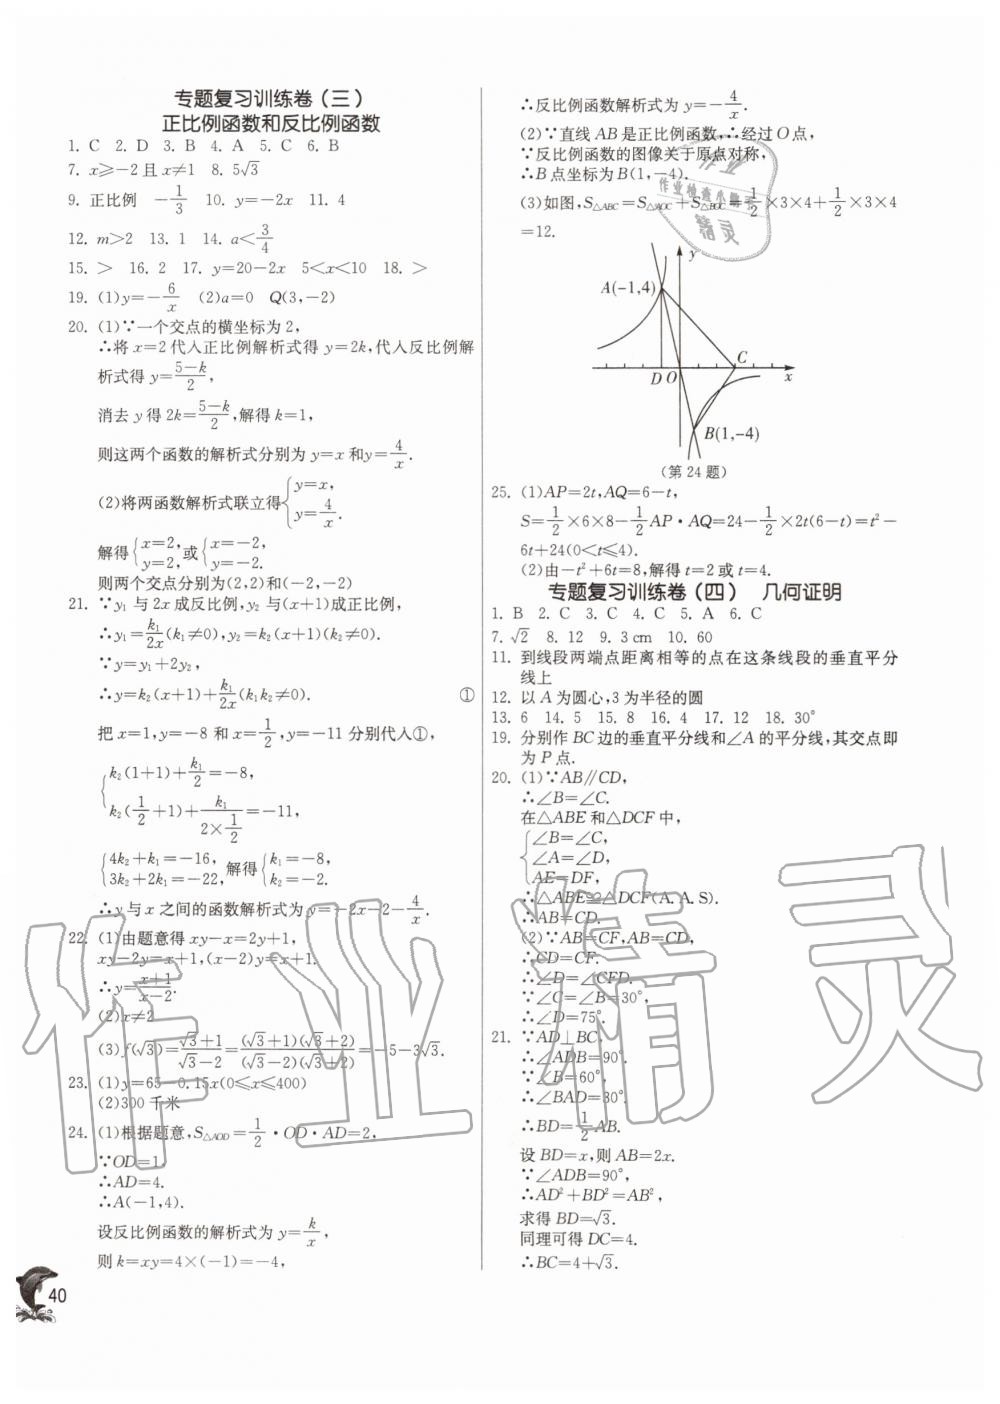 专题复习训练卷(三)
正比例函数和反比例函数
1. C 2. D 3. B 4. A 5. C 6. B
7. x≥-2且x≠1 8. 5√3
9. 正比例 -1/3 10. y=-2x 11. 4
12. m>2 13. 1 14. a<3/4
15. > 16. 2 17. y=20-2x 5<x<10 18. >
19. (1)y=-6/x (2)a=0 Q(3,-2)
20. (1)∵一个交点的横坐标为2,
∴将x=2代入正比例解析式得y=2k,代入反比例解
析式得y=(5-k)/2,
消去y得2k=(5-k)/2,解得k=1,
则这两个函数的解析式分别为y=x和y=4/x.
(2)将两函数解析式联立得{y=x, y=4/x.
解得{x=2, y=2,或{x=-2, y=-2.
则两个交点分别为(2,2)和(-2,-2)
21. ∵y₁与2x成反比例,y₂与(x+1)成正比例,
∴y₁=k₁/2x(k₁≠0),y₂=k₂(x+1)(k₂≠0).
∵y=y₁+2y₂,
∴y=k₂(x+1)+k₁/2x(k₁k₂≠0). ①
把x=1,y=-8和x=1/2,y=-11分别代入①,
{k₂(1+1)+k₁/2=-8,
k₂(1/2+1)+k₁/(2×1/2)=-11,
{4k₂+k₁=-16, 3k₂+2k₁=-22,解得{k₁=-8, k₂=-2.
∴y与x之间的函数解析式为y=-2x-2-4/x.
22. (1)由题意得xy-x=2y+1,
xy-2y=x+1,(x-2)y=x+1.
∴y=(x+1)/(x-2).
(2)x≠2
(3)f(√3)=(√3+1)/(√3-2)=(√3+1)(√3+2)/(√3-2)(√3+2)=-5-3√3.
23. (1)y=65-0.15x(0≤x≤400)
(2)300千米
24. (1)根据题意,S△AOD=1/2·OD·AD=2,
∵OD=1,
∴AD=4.
∴A(-1,4).
设反比例函数的解析式为y=k/x,
则k=xy=4×(-1)=-4,
40
∴反比例函数解析式为y=-4/x.
(2)∵直线AB是正比例函数,∴经过O点,
∵反比例函数的图像关于原点对称,
∴B点坐标为B(1,-4).
(3)如图,S△ABC=S△AOC+S△BOC=1/2×3×4+1/2×3×4
=12.
y
A(-1,4)
C
D O x
B(1,-4)
(第24题)
25. (1)AP=2t,AQ=6-t,
S=1/2×6×8-1/2AP·AQ=24-1/2×2t(6-t)=t²-
6t+24(0<t≤4).
(2)由-t²+6t=8,解得t=2或t=4.
专题复习训练卷(四) 几何证明
1. B 2. C 3. C 4. C 5. A 6. C
7. √2 8. 12 9. 3 cm 10. 60
11. 到线段两端点距离相等的点在这条线段的垂直平分
线上
12. 以A为圆心,3为半径的圆
13. 6 14. 5 15. 8 16. 4 17. 12 18. 30°
19. 分别作BC边的垂直平分线和∠A的平分线,其交点即
为P点.
20. (1)∵AB∥CD,
∴∠B=∠C.
在△ABE和△DCF中,
{∠B=∠C,
∠A=∠D,
AE=DF,
∴△ABE≌△DCF(A.A.S).
∴AB=CD.
(2)∵AB=CF,AB=CD,
∴CD=CF.
∴∠D=∠CFD.
∵∠C=∠B=30°,
∴∠D=75°.
21. ∵AD⊥BC,
∴∠ADB=90°.
∵∠B=60°,
∴∠BAD=30°.
∴BD=1/2AB.
设BD=x,则AB=2x.
∵∠ADB=90°,
∴AD²+BD²=AB²,
求得BD=√3.
同理可得DC=4.
∴BC=4+√3.
作业精灵
作业
作业检查小助手
精灵